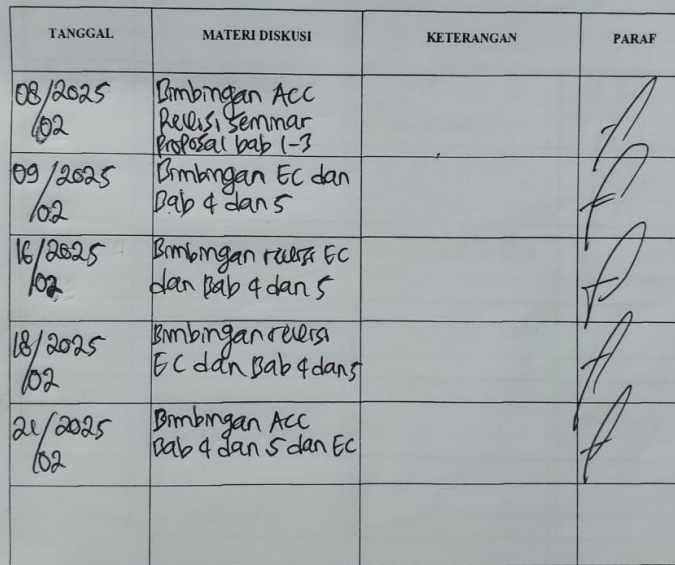 TANGGAL MATERI DISKUSI KETERANGAN PARAF
08/2025 Bimbingan ACC
/02 Revisi seminar
Proposal bab 1-3
09/2025 Bimbingan EC dan
/02 Bab 4 dan 5
16/2025 Bimbingan revisi EC
/02 dan Bab 4 dan 5
18/2025 Bimbingan revisi
/02 EC dan Bab 4 dan 5
/2025 Bimbingan ACC
/02 Bab 4 dan 5 dan EC